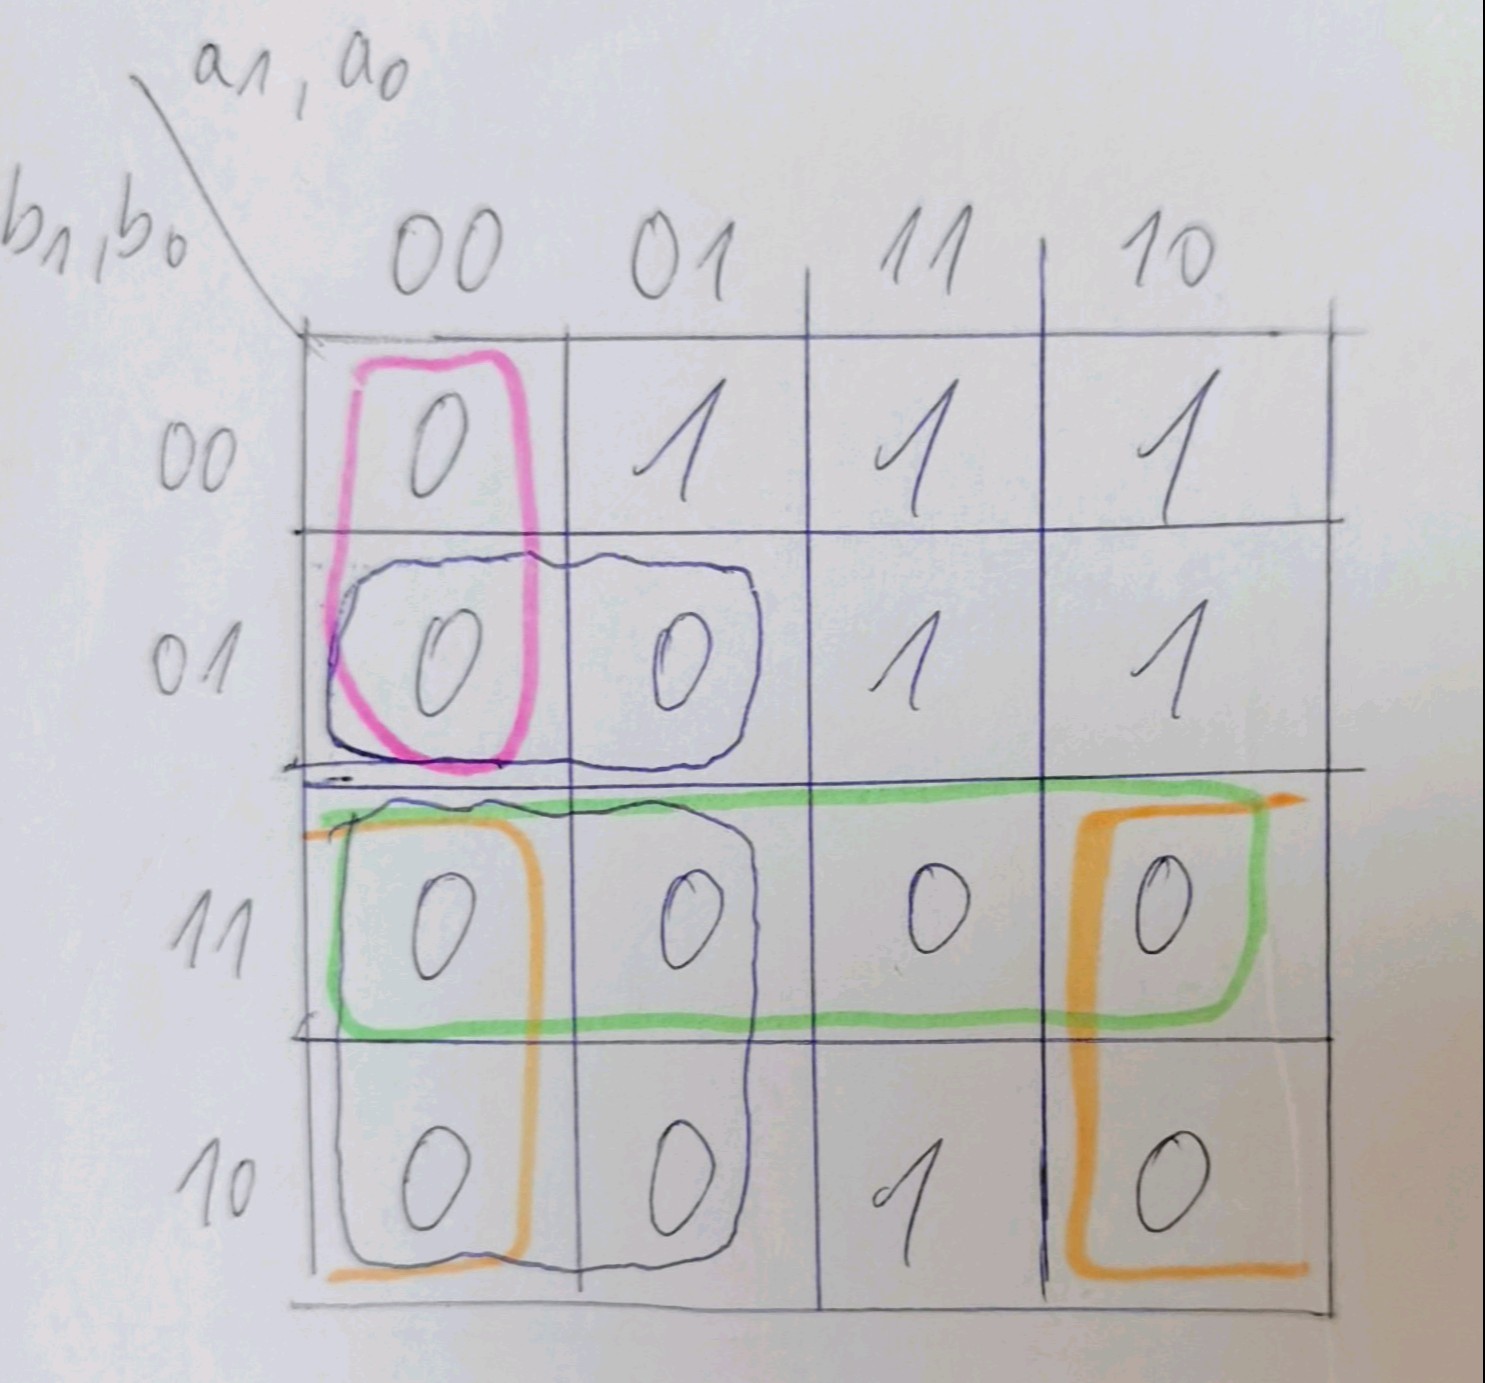 a1, a0
b1, b0
00 01 11 10
00 0 1 1 1
01 0 0 1 1
11 0 0 0 0
10 0 0 1 0